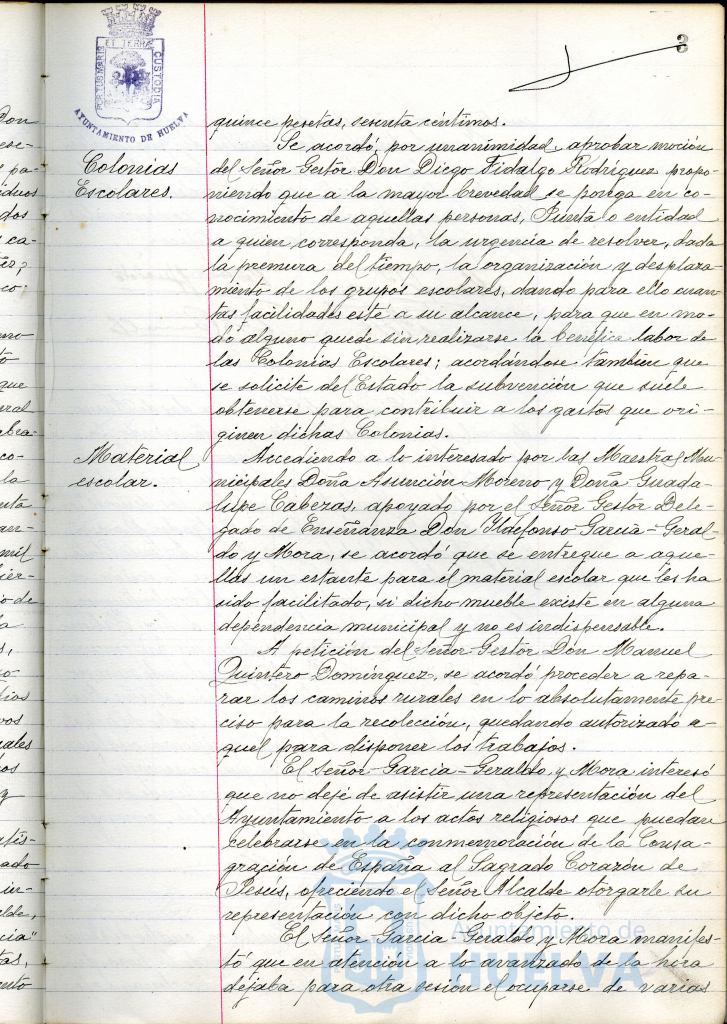 3
PORTUS MARIS ET TERRAE CUSTODIA
AYUNTAMIENTO DE HUELVA
quince pesetas, sesenta céntimos.
Colonias
Escolares.
Se acordó, por unanimidad, aprobar moción
del Señor Gestor Don Diego Fidalgo Rodríguez propo-
niendo que a la mayor brevedad se ponga en co-
nocimiento de aquellas personas, Junta o entidad
a quien corresponda, la urgencia de resolver, dada
la premura del tiempo, la organización y desplaza
miento de los grupos escolares, dando para ello cuan-
tas facilidades esté a su alcance, para que en mo-
do alguno quede sin realizarse la benéfica labor de
las Colonias Escolares; acordándose también que
se solicite del Estado la subvención que suele
obtenerse para contribuir a los gastos que ori-
ginen dichas Colonias.
Material
escolar.
Accediendo a lo interesado por las Maestras Mu-
nicipales Doña Asunción Moreno y Doña Guada-
lupe Cabezas, apoyado por el Señor Gestor Dele-
gado de Enseñanza Don Ildefonso García-Geral-
do y Mora, se acordó que se entregue a aque-
llas un estante para el material escolar que les ha
sido facilitado, si dicho mueble existe en alguna
dependencia municipal y no es indispensable.
A petición del Señor Gestor Don Manuel
Quintero Domínguez, se acordó proceder a repa-
rar los caminos rurales en lo absolutamente pre-
ciso para la recolección, quedando autorizado a-
quel para disponer los trabajos.
El Señor García-Geraldo y Mora interesó
que no deje de asistir una representación del
Ayuntamiento a los actos religiosos que puedan
celebrarse en la conmemoración de la Consa-
gración de España al Sagrado Corazón de
Jesús, ofreciendo el Señor Alcalde otorgarle su
representación con dicho objeto.
El Señor García-Geraldo y Mora manifes-
tó que en atención a lo avanzado de la hora
dejaba para otra sesión el ocuparse de varias
Ayuntamiento de
HUELVA